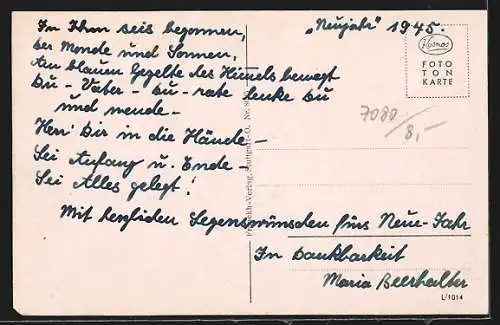 In Ihm seis begonnen,
der Monde und Sonnen,
Am blauen Gezelte des Himels bewegt
Du - Vater - Du - rate lenke Du
und wende -
Herr Dir in die Hände -
Sei Anfang u. Ende -
Sei Alles gelegt!
Mit herzlichen Segenswünschen fürs Neue-Jahr
In Dankbarkeit
Maria Beerhalter
„Neujahr" 1945.
Kosmos
FOTO
TON
KARTE
7080/8,-
L/1014